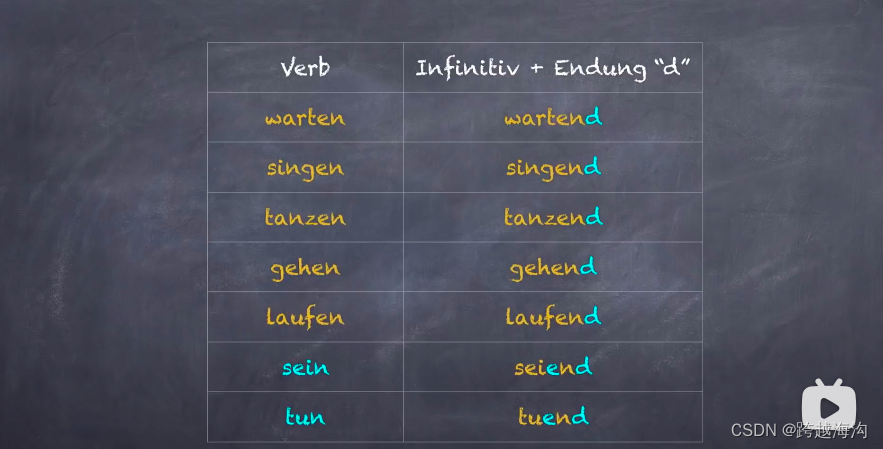 Verb Infinitiv + Endung “d”
warten wartend
singen singend
tanzen tanzend
gehen gehend
laufen laufend
sein seiend
tun tuend
CSDN @跨越海沟